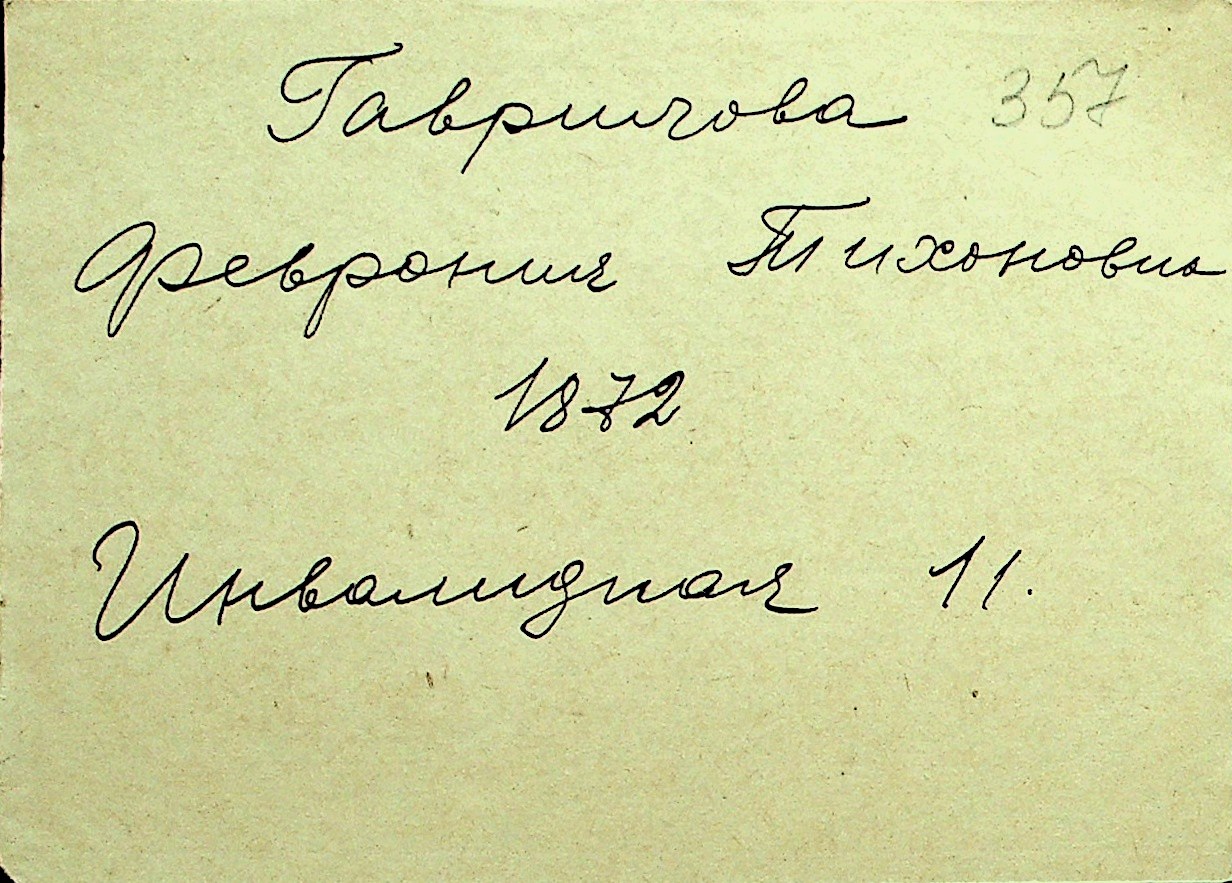 Гаврилова 357
Феврония Тихоновна
1872
Инвалидная 11.